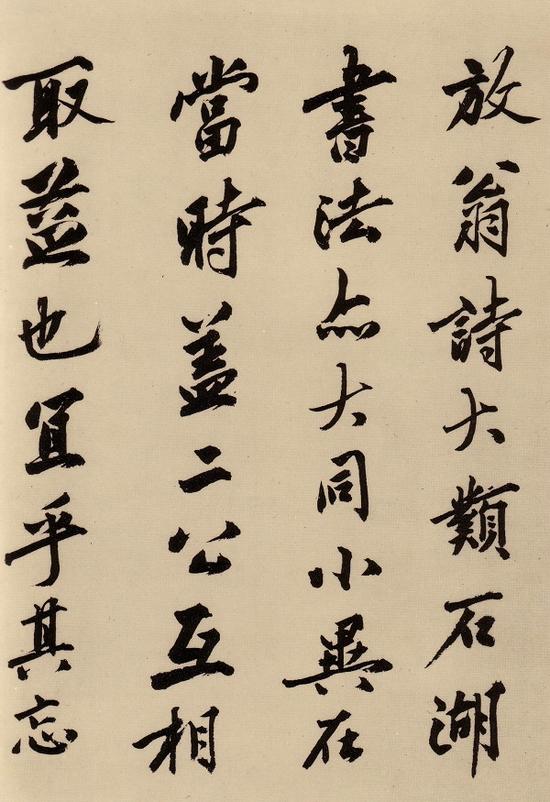 放翁詩大類石湖
書法亦大同小異在
當時盖二公互相
取益也宜乎其忘